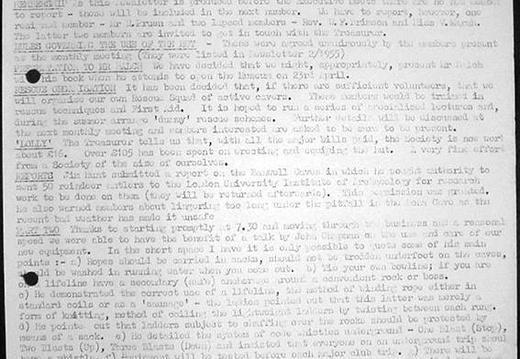 to report - those will be included in the next number. We have to report, however, one
new member - Mr and two lapsed members - Rev. and Miss V. Marsh.
The latter two members are invited to get in touch with the Treasurer.
RULES GOVERNING THE USE OF THE HUT - These were agreed unanimously by the members present
at the monthly meeting (They were listed in Newsletter 2/1955)
PRESENTATION TO MR BALCH We have decided that we might, appropriately, present Mr Balch
his book when he attends to open the Museum on 23rd April.
RESCUE ORGANISATION It has been decided that, if there are sufficient volunteers, that we
will organise our own Rescue Squad of active cavers. These members would be trained in
rescue techniques and First Aid. It is hoped to run a series of specialised lectures and,
during the summer arrange 'dummy' rescue schemes. Further details will be discussed at
the next monthly meeting and members interested are asked to be sure to be present.
'LOLLY' The Treasurer tells us that, with all the major bills paid, the Society is now worth
about £16. Over £105 has been spent on erecting and equiping the hut. A very fine effort
from a Society of the size of ourselves.
REPORTS Jim Hunt submitted a report on the Banwell Caves in which he sought authority to
sent 50 reindeer antlers to the London University Institute of Archaeology for research
work to be done on them (they will be returned afterwards). This permission was granted.
he also warned members about lingering too long under the pitfall in the Bone Cave as the
recent bad weather has made it unsafe
PART TWO Thanks to starting promptly at 7.30 and moving through the business at a reasonable
speed we were able to have the benefit of a talk by John Chapman on the use and care of our
new equipment. In the short space I have it is only possible to quote some of his main
points :- a) Ropes should be carried in sacks, should not be trodden underfoot in the caves,
should be washed in running water when you come out. b) Tie your own bowline; if you are
on lifeline have a secondary around a convenient rock or boss.
c) He demonstrated the correct use of a lifeline, the method of winding rope either in
standard coils or as a 'sausage' - the ladies pointed out that this latter was merely a
form of knitting, method of coiling the lightweight ladders by twisting between each rung.
d) He points out that ladders subject to chafing over the rocks should be protected by
means of a sack. e) He detailed the system of code whistles underground - One Blast (Stop),
Two Blasts (Up), Three Blasts (Down) and insisted that everyone on an underground trip should